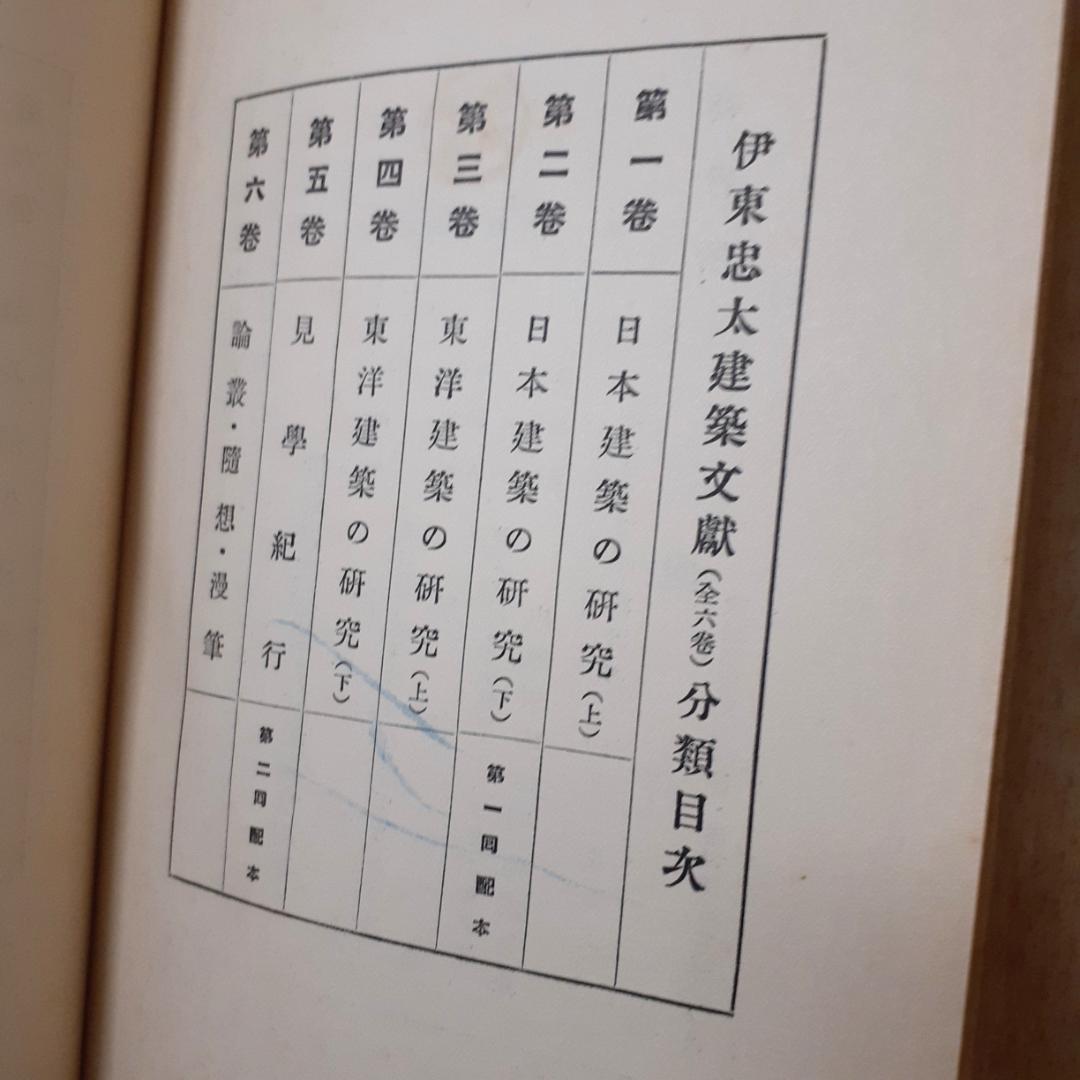 伊東忠太建築文獻(全六卷)分類目次
第一卷 日本建築の硏究(上)
第二卷 日本建築の硏究(下) 第一囘配本
第三卷 東洋建築の硏究(上)
第四卷 東洋建築の硏究(下)
第五卷 見學紀行 第二囘配本
第六卷 論叢・隨想・漫筆